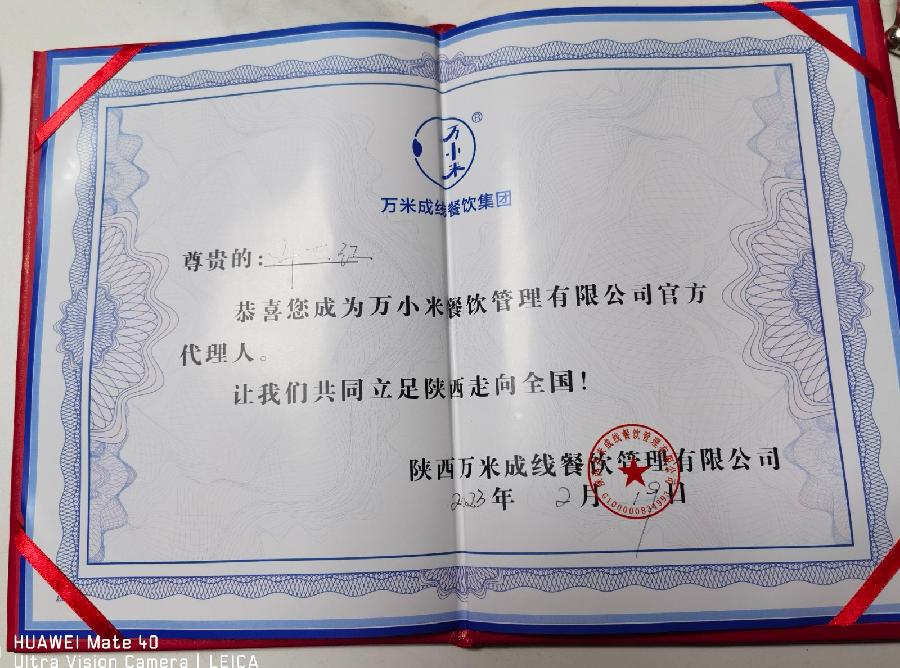 万小米
®
万米成线餐饮集团
尊贵的：
恭喜您成为万小米餐饮管理有限公司官方
代理人。
让我们共同立足陕西走向全国！
陕西万米成线餐饮管理有限公司
2023年 2月 19日
HUAWEI Mate 40
Ultra Vision Camera | LEICA